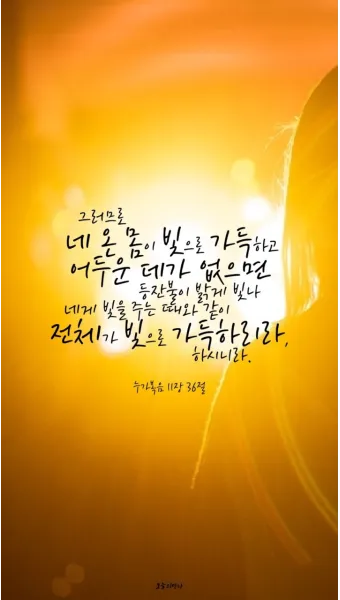 그러므로
네 온 몸이 빛으로 가득하고
어두운 데가 없으면
등잔불이 밝게 빛나
네게 빛을 주는 때와 같이
전체가 빛으로 가득하리라,
하시니라.
누가복음 11장 36절